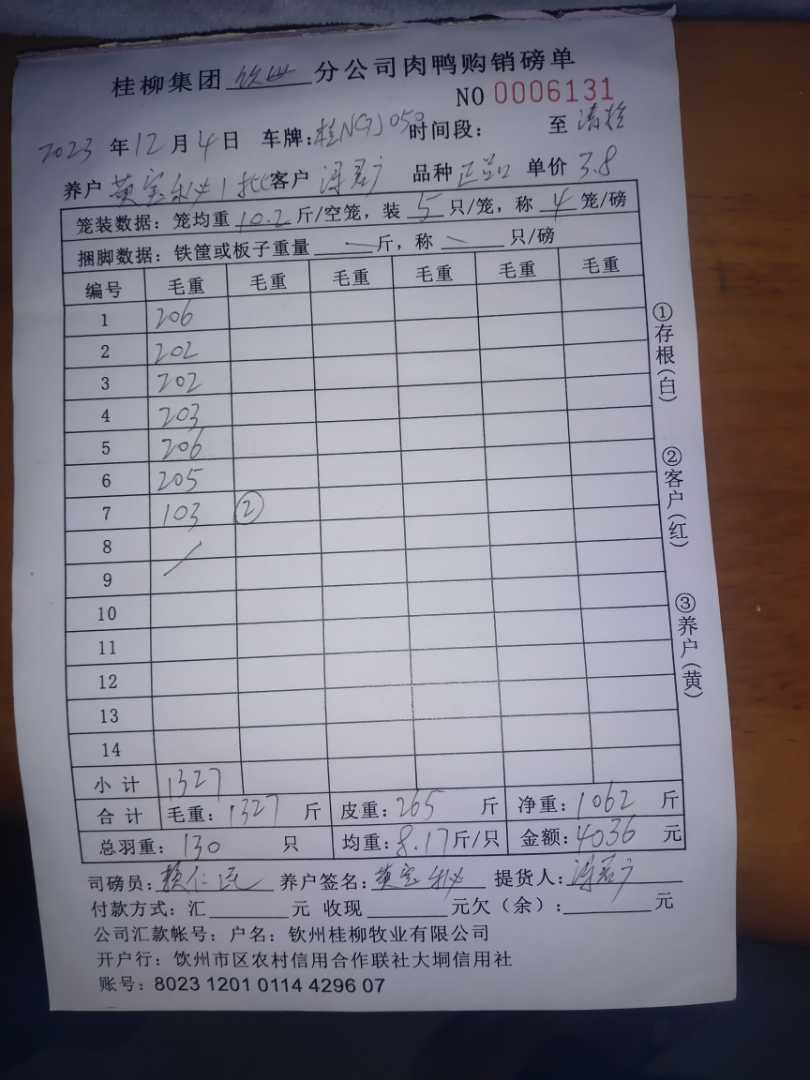 桂柳集团 钦州 分公司肉鸭购销磅单
NO 0006131
2023 年 12 月 4 日 车牌: 桂N 050 时间段: 至
养户 黄宝秘 1批 客户 品种 单价 3.8
笼装数据: 笼均重 10.2 斤/空笼, 装 5 只/笼, 称 4 笼/磅
捆脚数据: 铁筐或板子重量 斤, 称 只/磅
编号 毛重 毛重 毛重 毛重 毛重 毛重
1 206
2 202
3 202
4 203
5 206
6 205
7 103 ②
8
9
10
11
12
13
14
小计 1327
合计 毛重: 1327 斤 皮重: 265 斤 净重: 1062 斤
总羽重: 130 只 均重: 8.17 斤/只 金额: 4036 元
司磅员: 养户签名: 黄宝秘 提货人:
付款方式: 汇 元 收现 元欠(余): 元
公司汇款帐号: 户名: 钦州桂柳牧业有限公司
开户行: 饮州市区农村信用合作联社大垌信用社
账号: 8023 1201 0114 4296 07
①存根(白)
②客户(红)
③养户(黄)